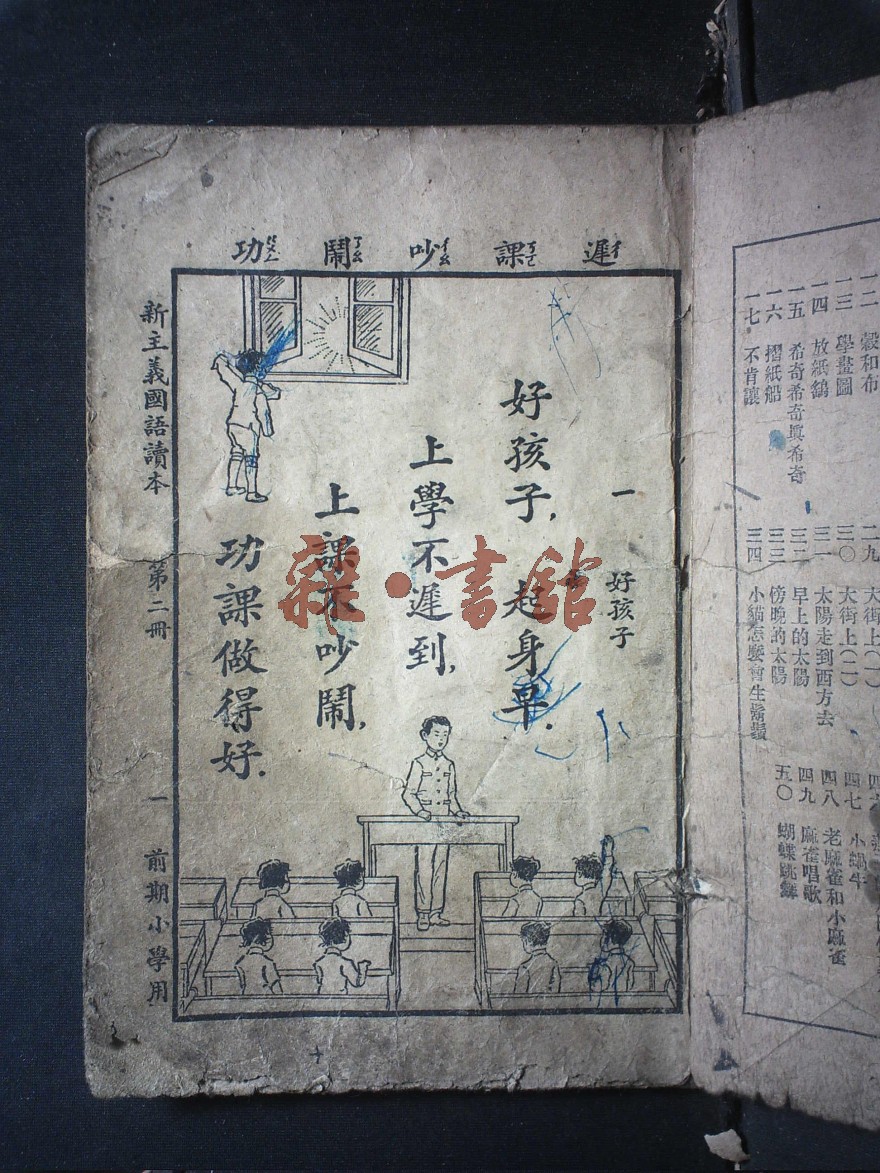 遲 課 吵 鬧 功
一 好孩子
好孩子, 起身早.
上學不遲到,
上課不吵鬧,
功課做得好.
新主義國語讀本 第二冊 一 前期小學用
雜·書館
一二 穀和布
一三 學畫圖
一四 放紙鷂
一五 希奇希奇真希奇
一六 摺紙船
一七 不肯讓
二九 大街上(一)
三〇 大街上(二)
三一 太陽走到西方去
三二 早上的太陽
三三 傍晚的太陽
三四 小貓怎麼會生鬍鬚
四七 小蝸牛
四八 老麻雀和小麻雀
四九 麻雀唱歌
五〇 蝴蝶跳舞